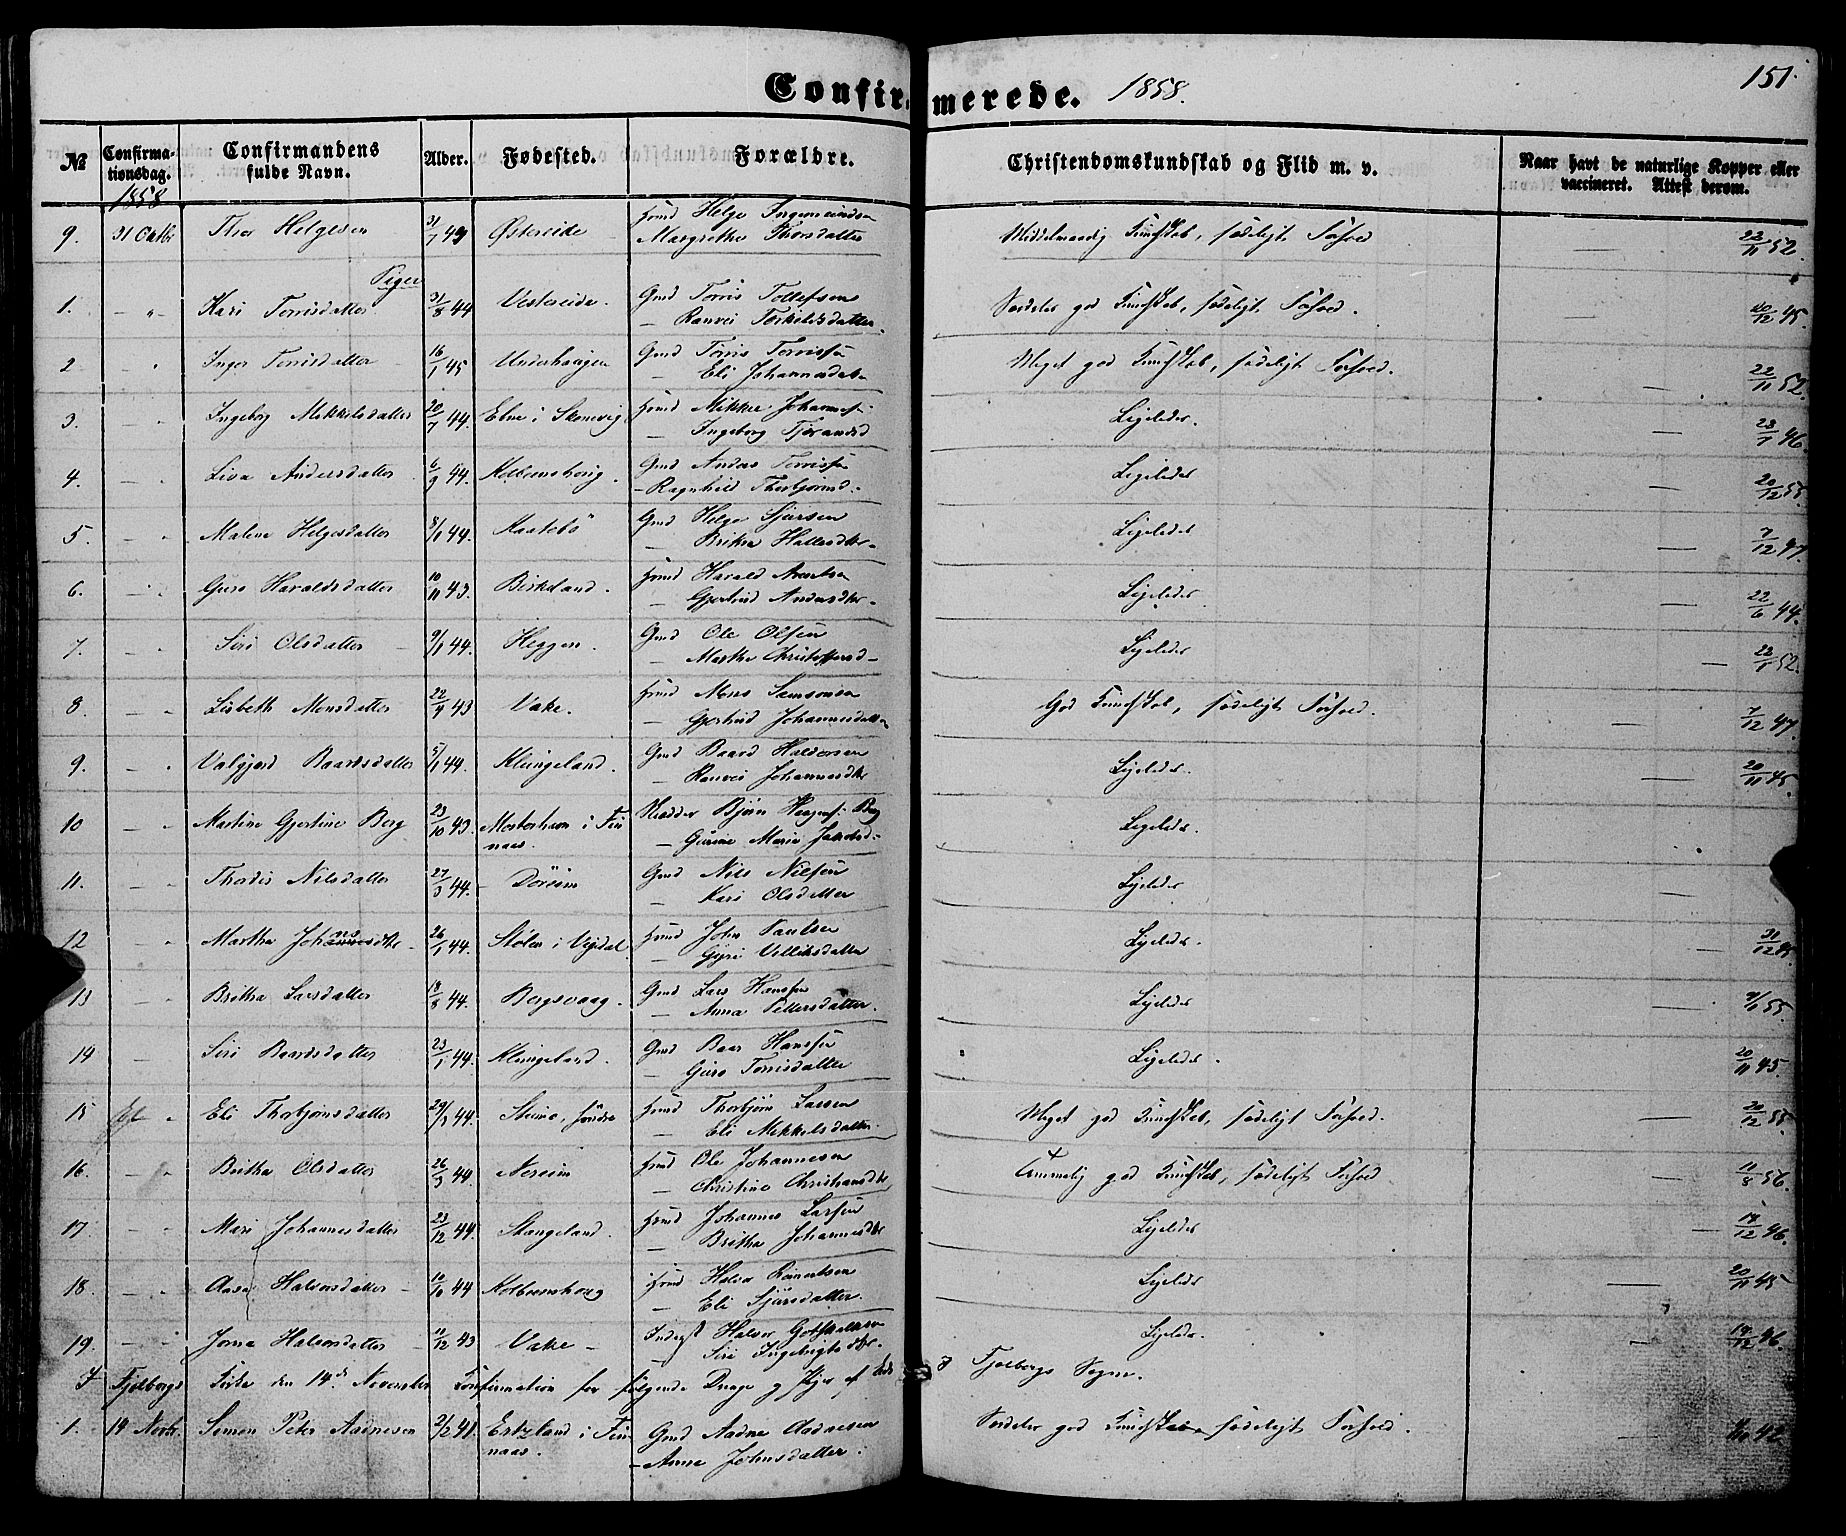 Confirmerede. 1858. 151.
№ Confirmationsdag. Confirmandens fulde Navn. Alder. Fødested. Forældre. Christendomskundskab og Flid m. v. Naar havt de naturlige Kopper eller vaccineret. Attest derom.
1858
9. 31 Octbr Thor Helgesen 31/7 43 Østereide Hmd Helge Ingemundsen Middelmaadig Kundskab, sædeligt Forhold — 22/11 52.
Margrethe Thorsdatter
Piger
1. — " Kari Torrisdatter 31/8 44 Vestereide. Gmd Torris Tollefsen Særdeles god Kundskab, sædeligt Forhold. — 20/12 45.
— Ranvei Torkildsdatter.
2 — " Inger Torrisdatter 16/1 45 Underhaugen Gmd Torris Torrissen Meget god Kundskab, sædeligt Forhold. — 22/11 52.
— Eli Johannesdatter
3. — " Ingeborg Mikkelsdatter 20/7 44. Etne i Skonevig Hmd Mikkel Johannes. Ligeledes. — 28/7 46.
— Ingeborg Tjerandsd
4. — " Liva Andersdatter 6/9 44. Kolbeinshoug. Gmd Anders Torrissen Ligeledes — 20/12 55.
— Ragnhild Thorbjørnsd.
5. — " Malene Helgesdatter 8/1 44. Kaatebö Gmd Helge Sjursen Ligeledes — 7/12 47.
— Britha Hallesdtr.
6. — " Guro Haraldsdatter 10/11 43. Birkeland. Hmd Harald Arentsen Ligeledes. — 22/6 44.
— Gjertrud Andersdtr.
7. — " Siri Olsdatter 9/1 44. Heggen. Gmd Ole Olsen Ligeledes — 22/1 52.
— Martha Christoffersd
8. — " Lisbeth Monsdatter 22/9 43 Vake. Hmd Mons Samsonsen God Kundskab, sædeligt Forhold. — 7/12 47.
— Gjertrud Johannesdatter
9. — " Valgjerd Baardsdatter 5/1 44. Klungeland. Gmd Baard Haldorsen Ligeledes. — 20/11 45.
— Ranvei Johannesdtr
10 — " Martine Gjertine Berg 23/10 43. Mosterhavn i Finnaas. Bjørn Berg Ligeledes. —
— Gurine Marie Jakobsd.
11. — " Thordis Nilsdatter 27/3 44. Dörheim Gmd Nils Nilsen Ligeledes —
— Kari Olsdatter
12 — " Martha Johnsdtr. 26/1 44. Stölen i Vigdal Hmd John Paulsen Ligeledes. — 31/12 45.
— Gyri Villiksdatter
13 — " Britha Larsdatter 18/8 44. Bergsvaag. Gmd Lars Hansen Ligeledes — 9/1 55.
— Anna Pettersdatter.
14 — Siri Baardsdatter 23/1 44. Klungeland. Gmd Baar Hansen Ligeledes. 20/11 45.
— Guro Torrisdatter
15 " Eli Thorbjørnsdatter 29/3 44. Steine, søndre Hmd Thorbjørn Larsen Meget god Kundskab, sædeligt Forhold. — 20/12 55.
— Eli Mikkelsdatter.
16. — " Britha Olsdatter 26/3 44. Nereim Hmd Ole Johannesen Temmelig god Kundskab, sædeligt Forhold. — 11/8 56.
— Christine Christiansdtr
17. — " Mari Johannesdatter 23/12 44. Stangeland. Hmd Johannes Larsen Ligeledes — 14/12 46.
— Britha Johannesdtr
18. — " Aasa Halvorsdatter 10/10 44 Kolbeinshoug Hmd Halvor Ligeledes — 20/11 45
— Eli Sjursdatter.
19. — " Jorna Halvorsdatter 11/12 43 Vake — Inderst Halvor Gotskalksen Ligeledes. — 14/12 46.
— Siri Ingebrigtsdtr.
I Fjelbergs Kirke den 14de November Confirmation for følgende Drenge og Piger af Fjelbergs Sogn.
1. 14 Novbr. Simon Peter Aadnesen 2/2 41. Estzland i Finnaas. Gmd Aadne Aadnesen Særdeles god Kundskab, sædeligt Forhold. — 42
— Anna Johnsdatter.